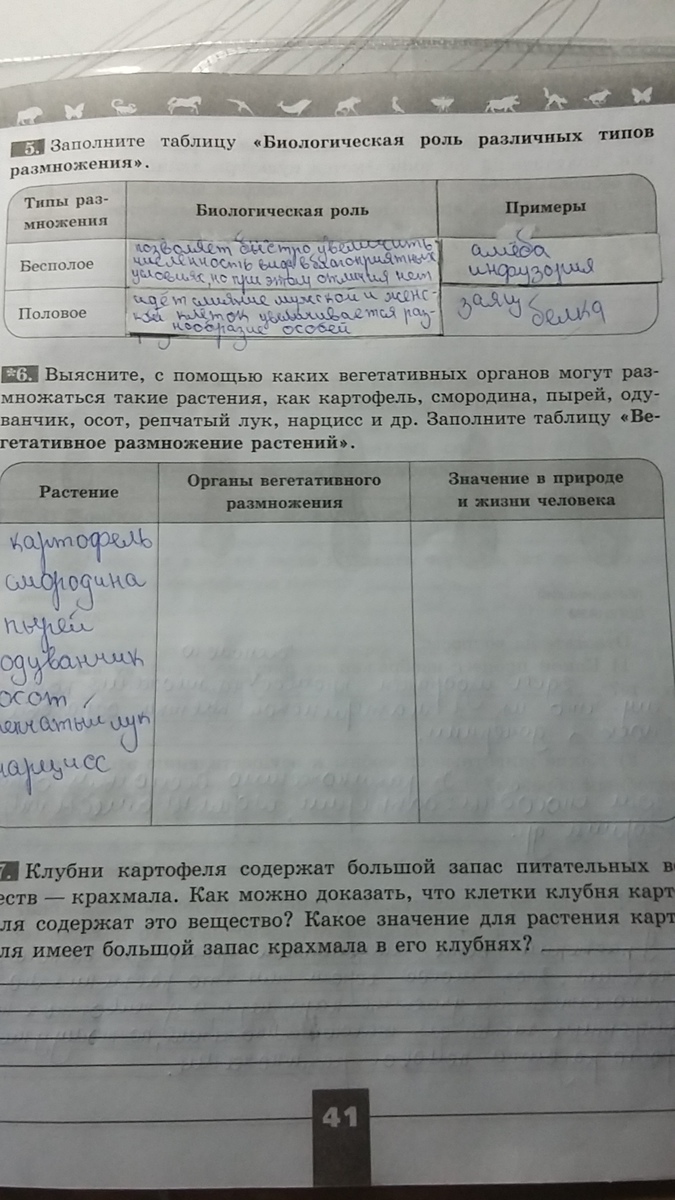 5. Заполните таблицу «Биологическая роль различных типов
размножения».
Типы раз-
множения
Биологическая роль
Примеры
Бесполое
позволяет быстро увеличить
численность вида в благоприятных
условиях, но при этом отличия нет
амёба
инфузория
Половое
идёт слияние мужской и женс-
кой клеток увеличивается раз-
нообразие особей
заяц
белка
*6. Выясните, с помощью каких вегетативных органов могут раз-
множаться такие растения, как картофель, смородина, пырей, оду-
ванчик, осот, репчатый лук, нарцисс и др. Заполните таблицу «Ве-
гетативное размножение растений».
Растение
Органы вегетативного
размножения
Значение в природе
и жизни человека
картофель
смородина
пырей
одуванчик
осот
репчатый лук
нарцисс
7. Клубни картофеля содержат большой запас питательных ве
еств — крахмала. Как можно доказать, что клетки клубня карт
ля содержат это вещество? Какое значение для растения карт
ля имеет большой запас крахмала в его клубнях?
41